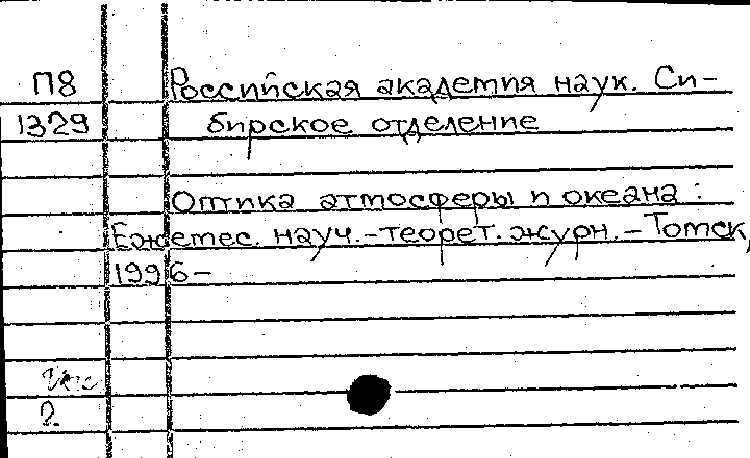 П8 Российская академия наук. Си-
1329 бирское отделение
Оптика атмосферы и океана :
Ежемес. науч.-теорет. журн. – Томск,
1996 –
2